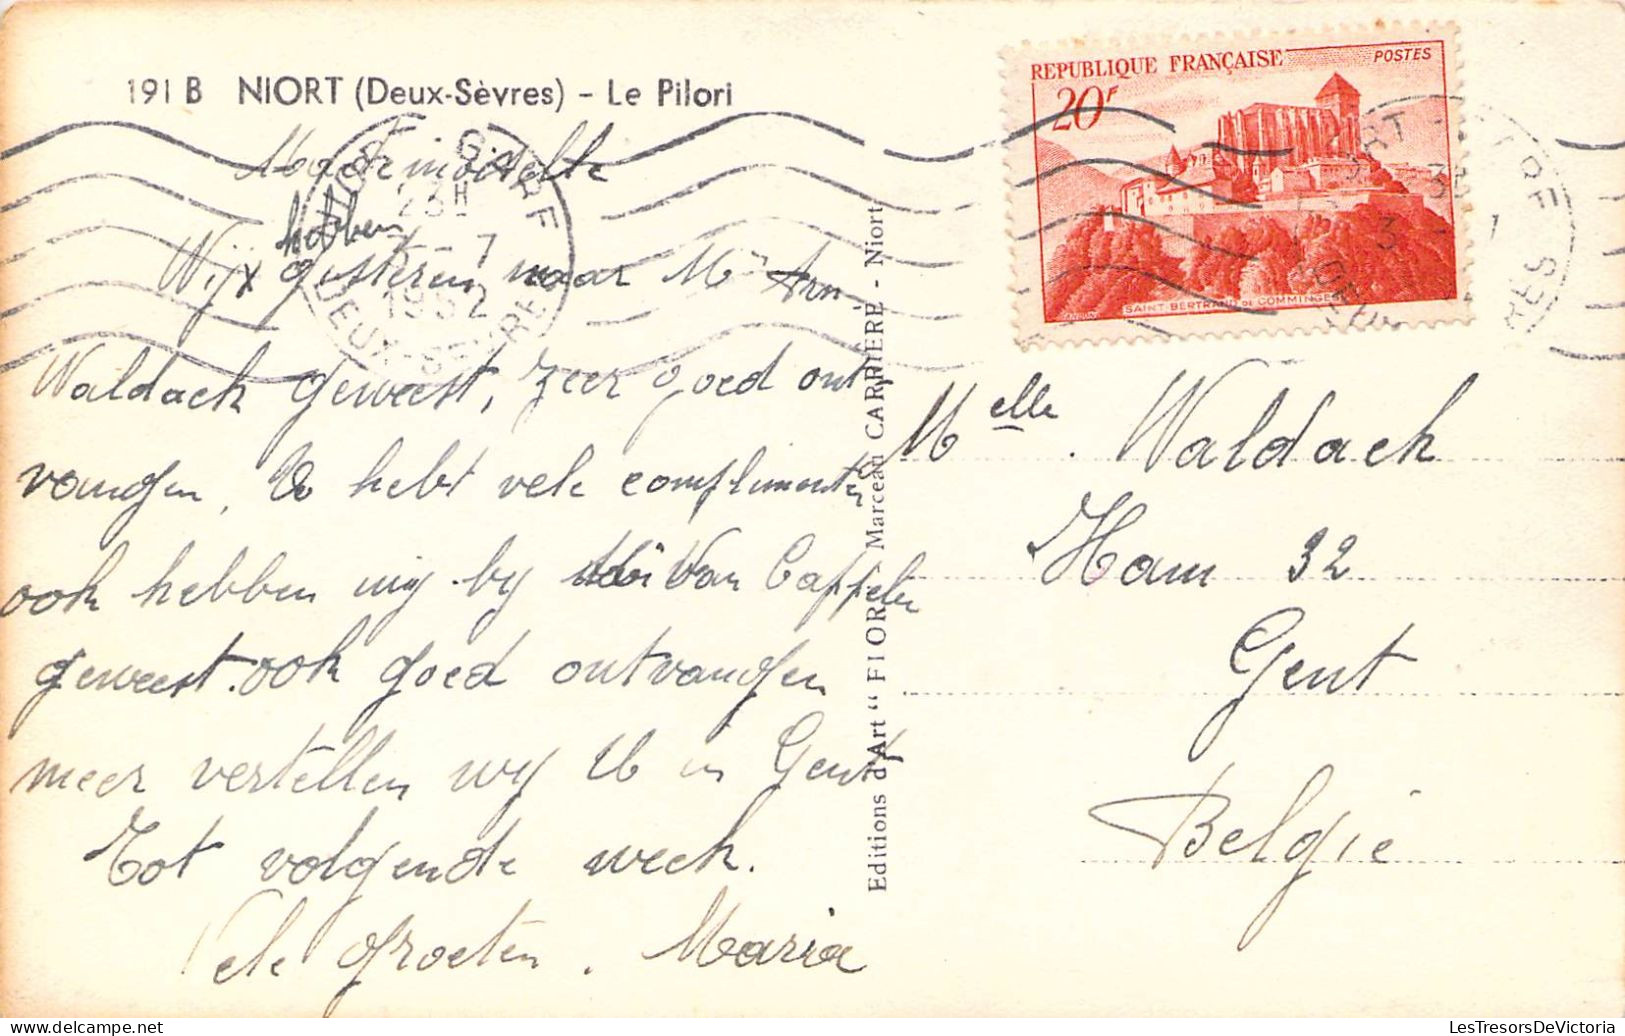 191 B NIORT (Deux-Sèvres) - Le Pilori
REPUBLIQUE FRANÇAISE POSTES
20F
SAINT-BERTRAND DE COMMINGES
NIORT GARE
23H
7 - 7
1952
DEUX-SEVRES
Mademoiselle
hebben
Wijx gisteren naar Mr Ann
Waldack geweest, zeer goed ont
vangen, U hebt vele complimenten
ook hebben wij by Van Cappelen
geweest. ook goed ontvangen
meer vertellen wy U in Gent
Tot volgende week.
Vele groeten. Maria
Editions d'Art "FIOR" Marceau CARRIÈRE - Niort
Melle. Waldack
Ham 32
Gent
Belgie
LesTresorsDeVictoria